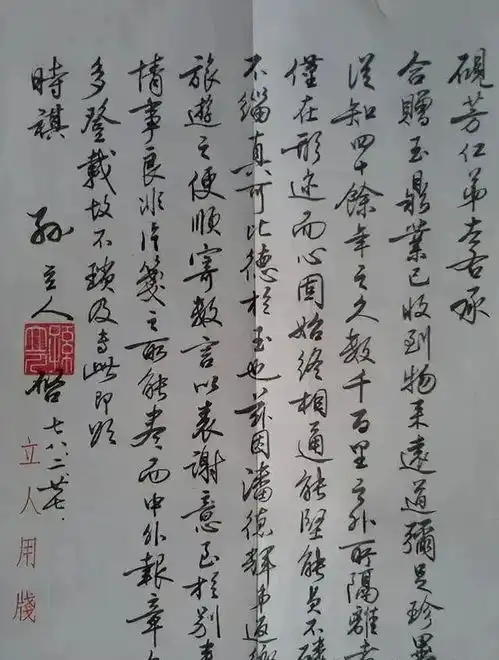 硯芳仁弟左右承
合贈玉鼎業已收到物來遠道彌足珍異
從知四十餘年之久數千百里之外所隔離者
僅在形迹而心固始終相通能堅能貞不磷
不緇真可比德於玉也茲因潘德輝弟返鄉
旅遊之便順寄數言以表謝意至於別
情事良非片箋之所能盡而中外報章
多登載故不瑣及專此即頌
時祺
孫立人 啓 七八、二、廿七、
立人用牋